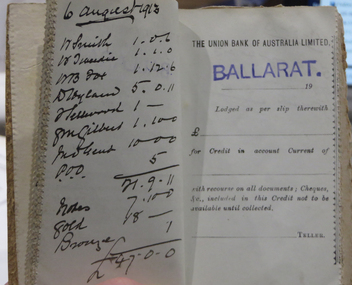 6 August 1913
W Smith 1.0.6
1.1.0
W B Fox 1.12.6
5.0.11
1 —
Gilbert 1.10.0
10-0-0
P.O.O 5
21.9.11
Notes 7.10.0
Gold 18 —
Bronze 1
£47-0-0
THE UNION BANK OF AUSTRALIA LIMITED.
BALLARAT.
19
Lodged as per slip herewith
£
for Credit in account Current of
with recourse on all documents; Cheques,
&c., included in this Credit not to be
available until collected.
TELLER.